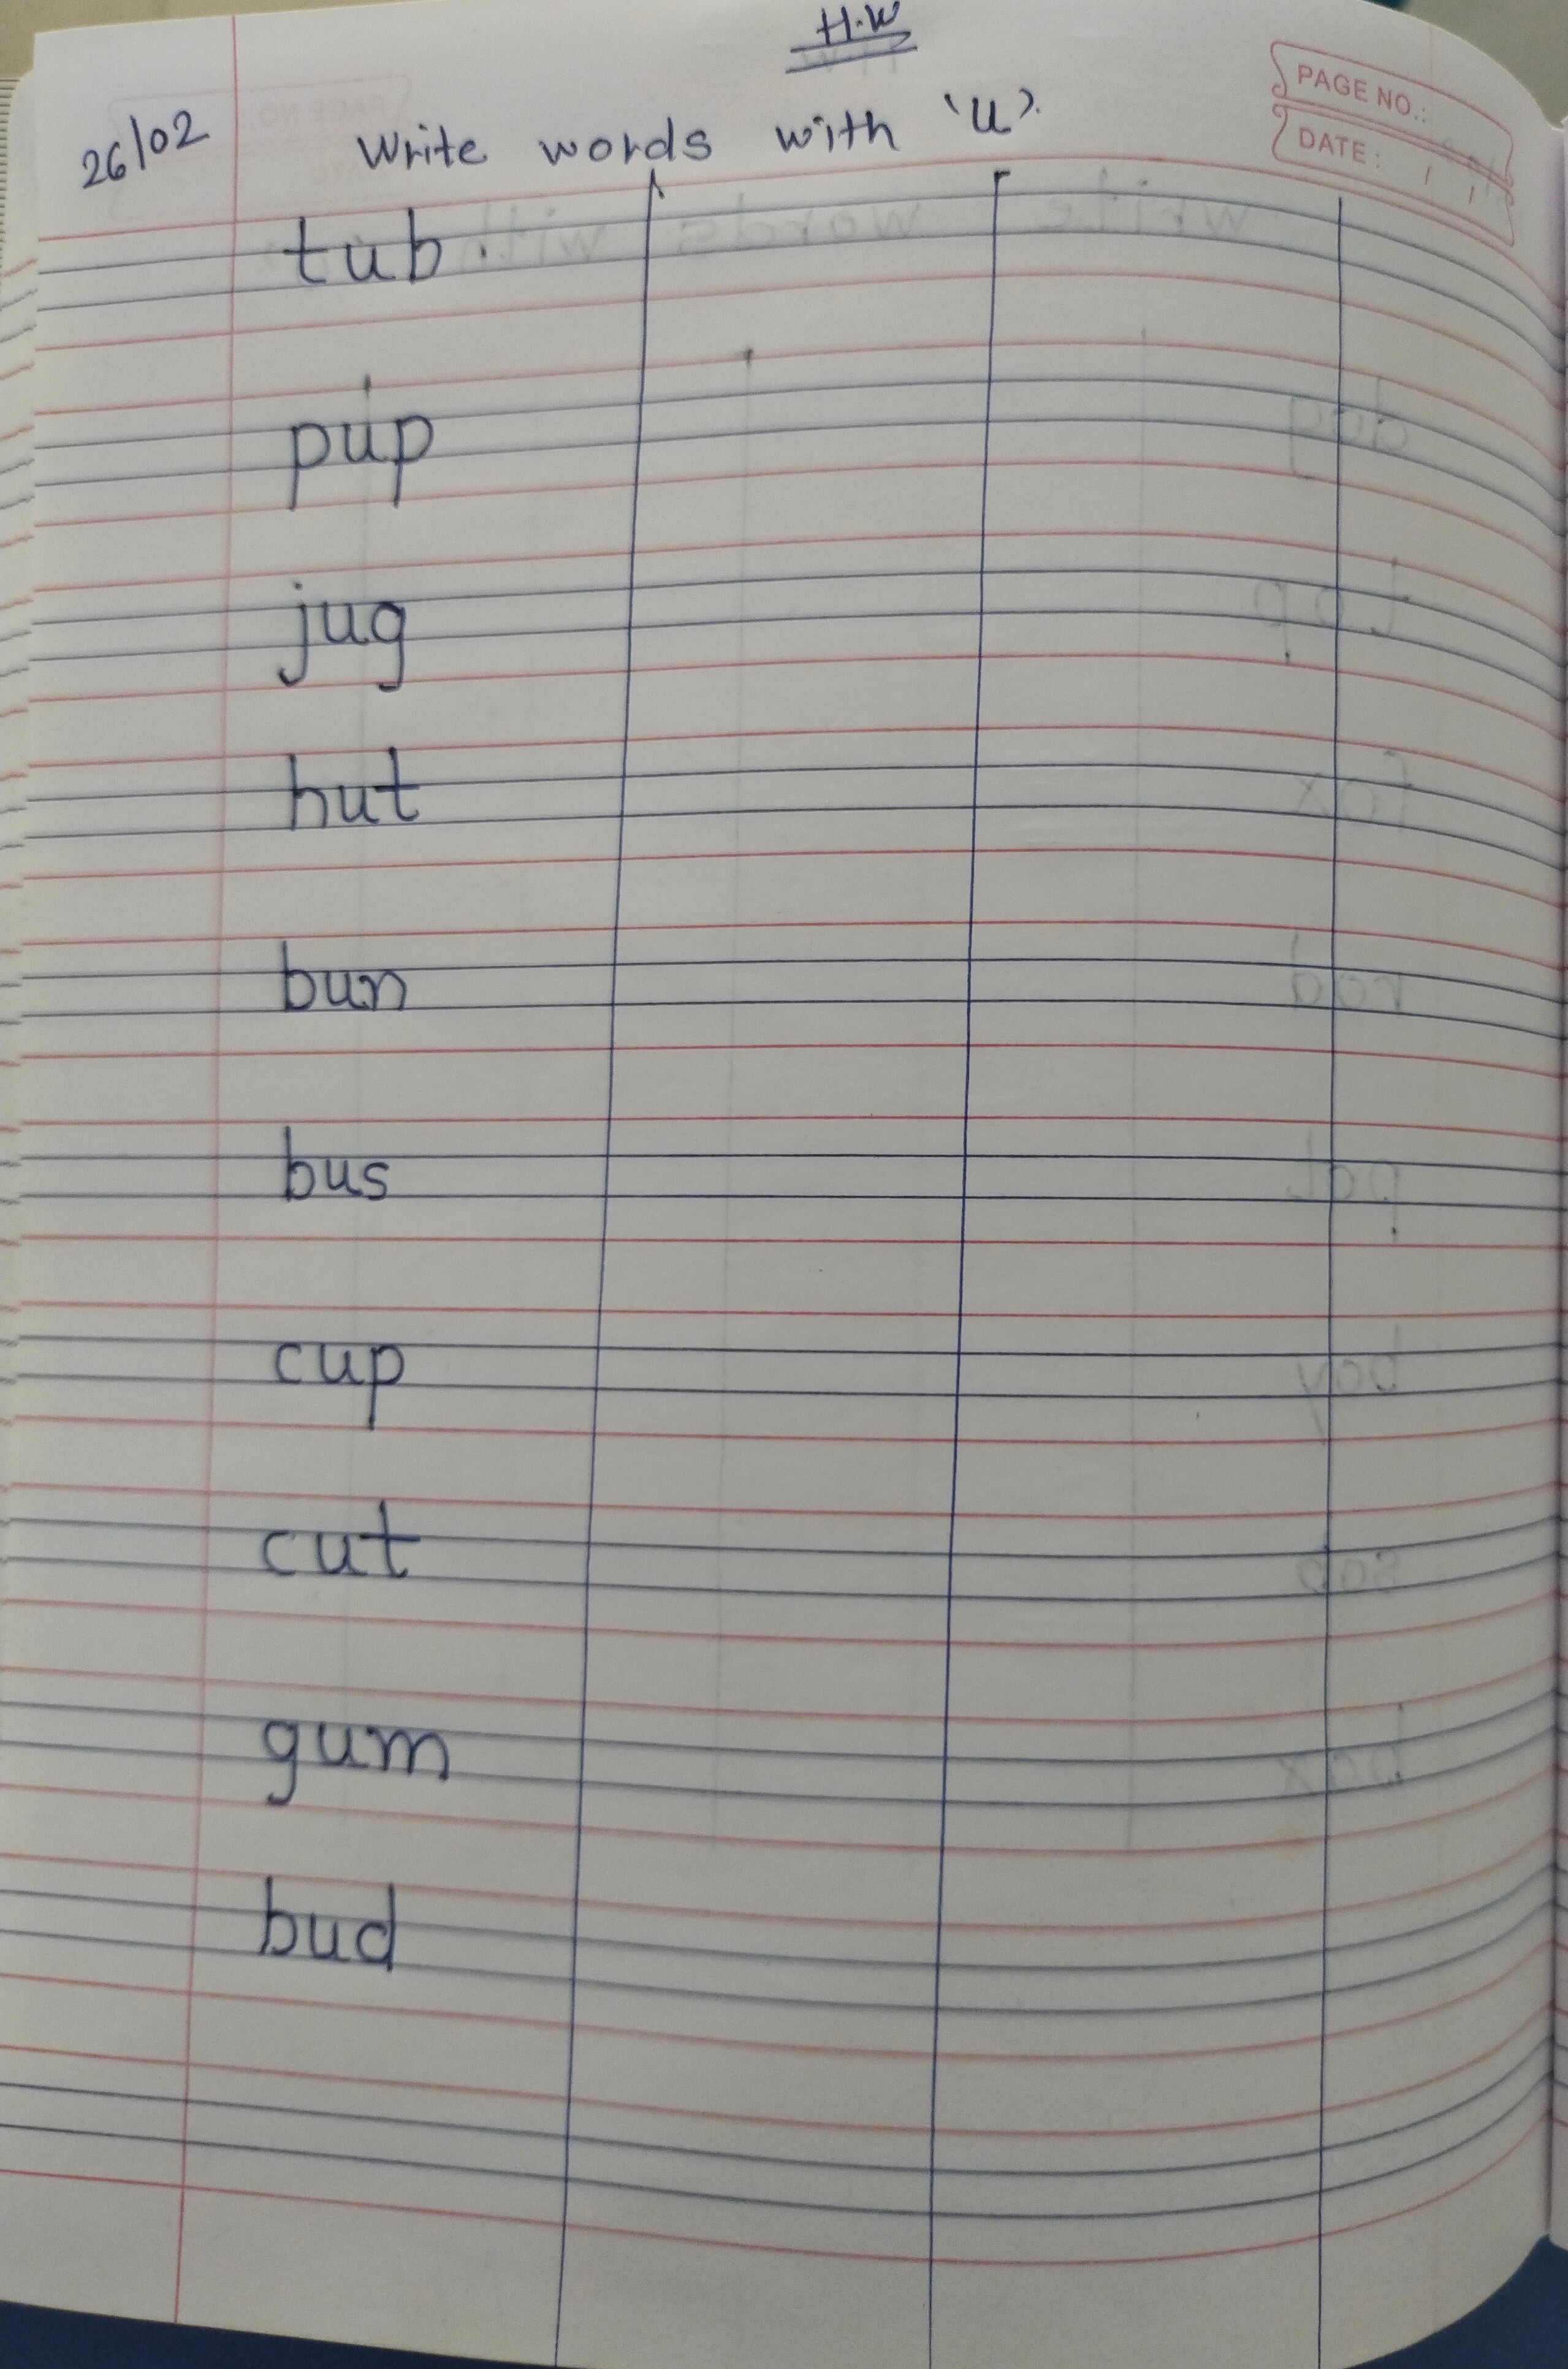 H.W
PAGE NO.:
DATE: / /
26/02
Write words with 'u'.
tub.
pup
jug
hut
bun
bus
cup
cut
gum
bud